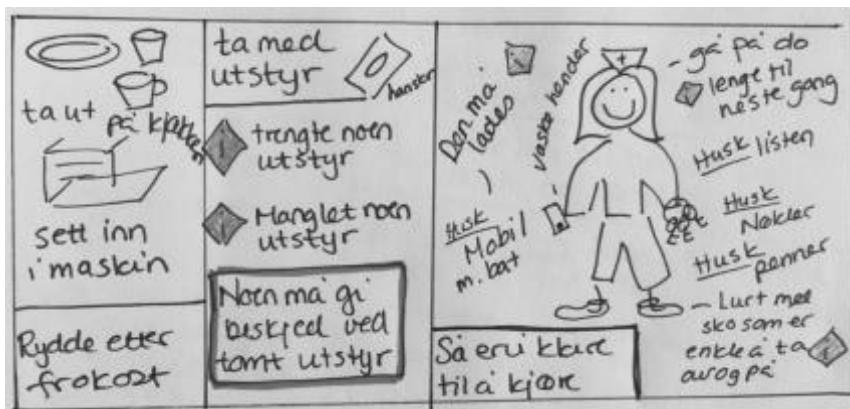 ta ut
på kjøkken
sett inn
i maskin
Rydde etter
frokost
ta med
utstyr
hansker
trengte noen
utstyr
Manglet noen
utstyr
Noen må gi
beskjed ved
tomt utstyr
Den må
lades
vaske hender
Husk
Mobil
m. bat
- gå på do
lenge til
neste gang
Husk listen
Husk
Nøkler
Husk
penner
- Lurt med
sko som er
enkle å ta
av og på
Så er vi klare
til å kjøre